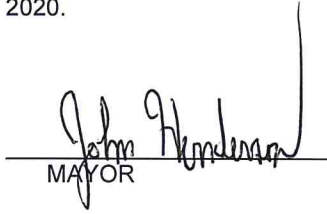 2020.
John Henderson
MAYOR